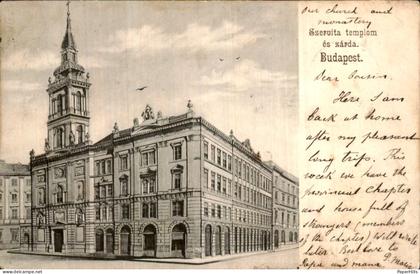 our church and
monastery
Szervita templom
és zárda.
Budapest.
Dear Cousin.
Here I am
back at home
after my pleasant
long trip. This
week we have the
provincial Chapter
and house full of
strangers (members
of the Chapter) will
write later. Best love to
Papa and Mama
© PaperHits